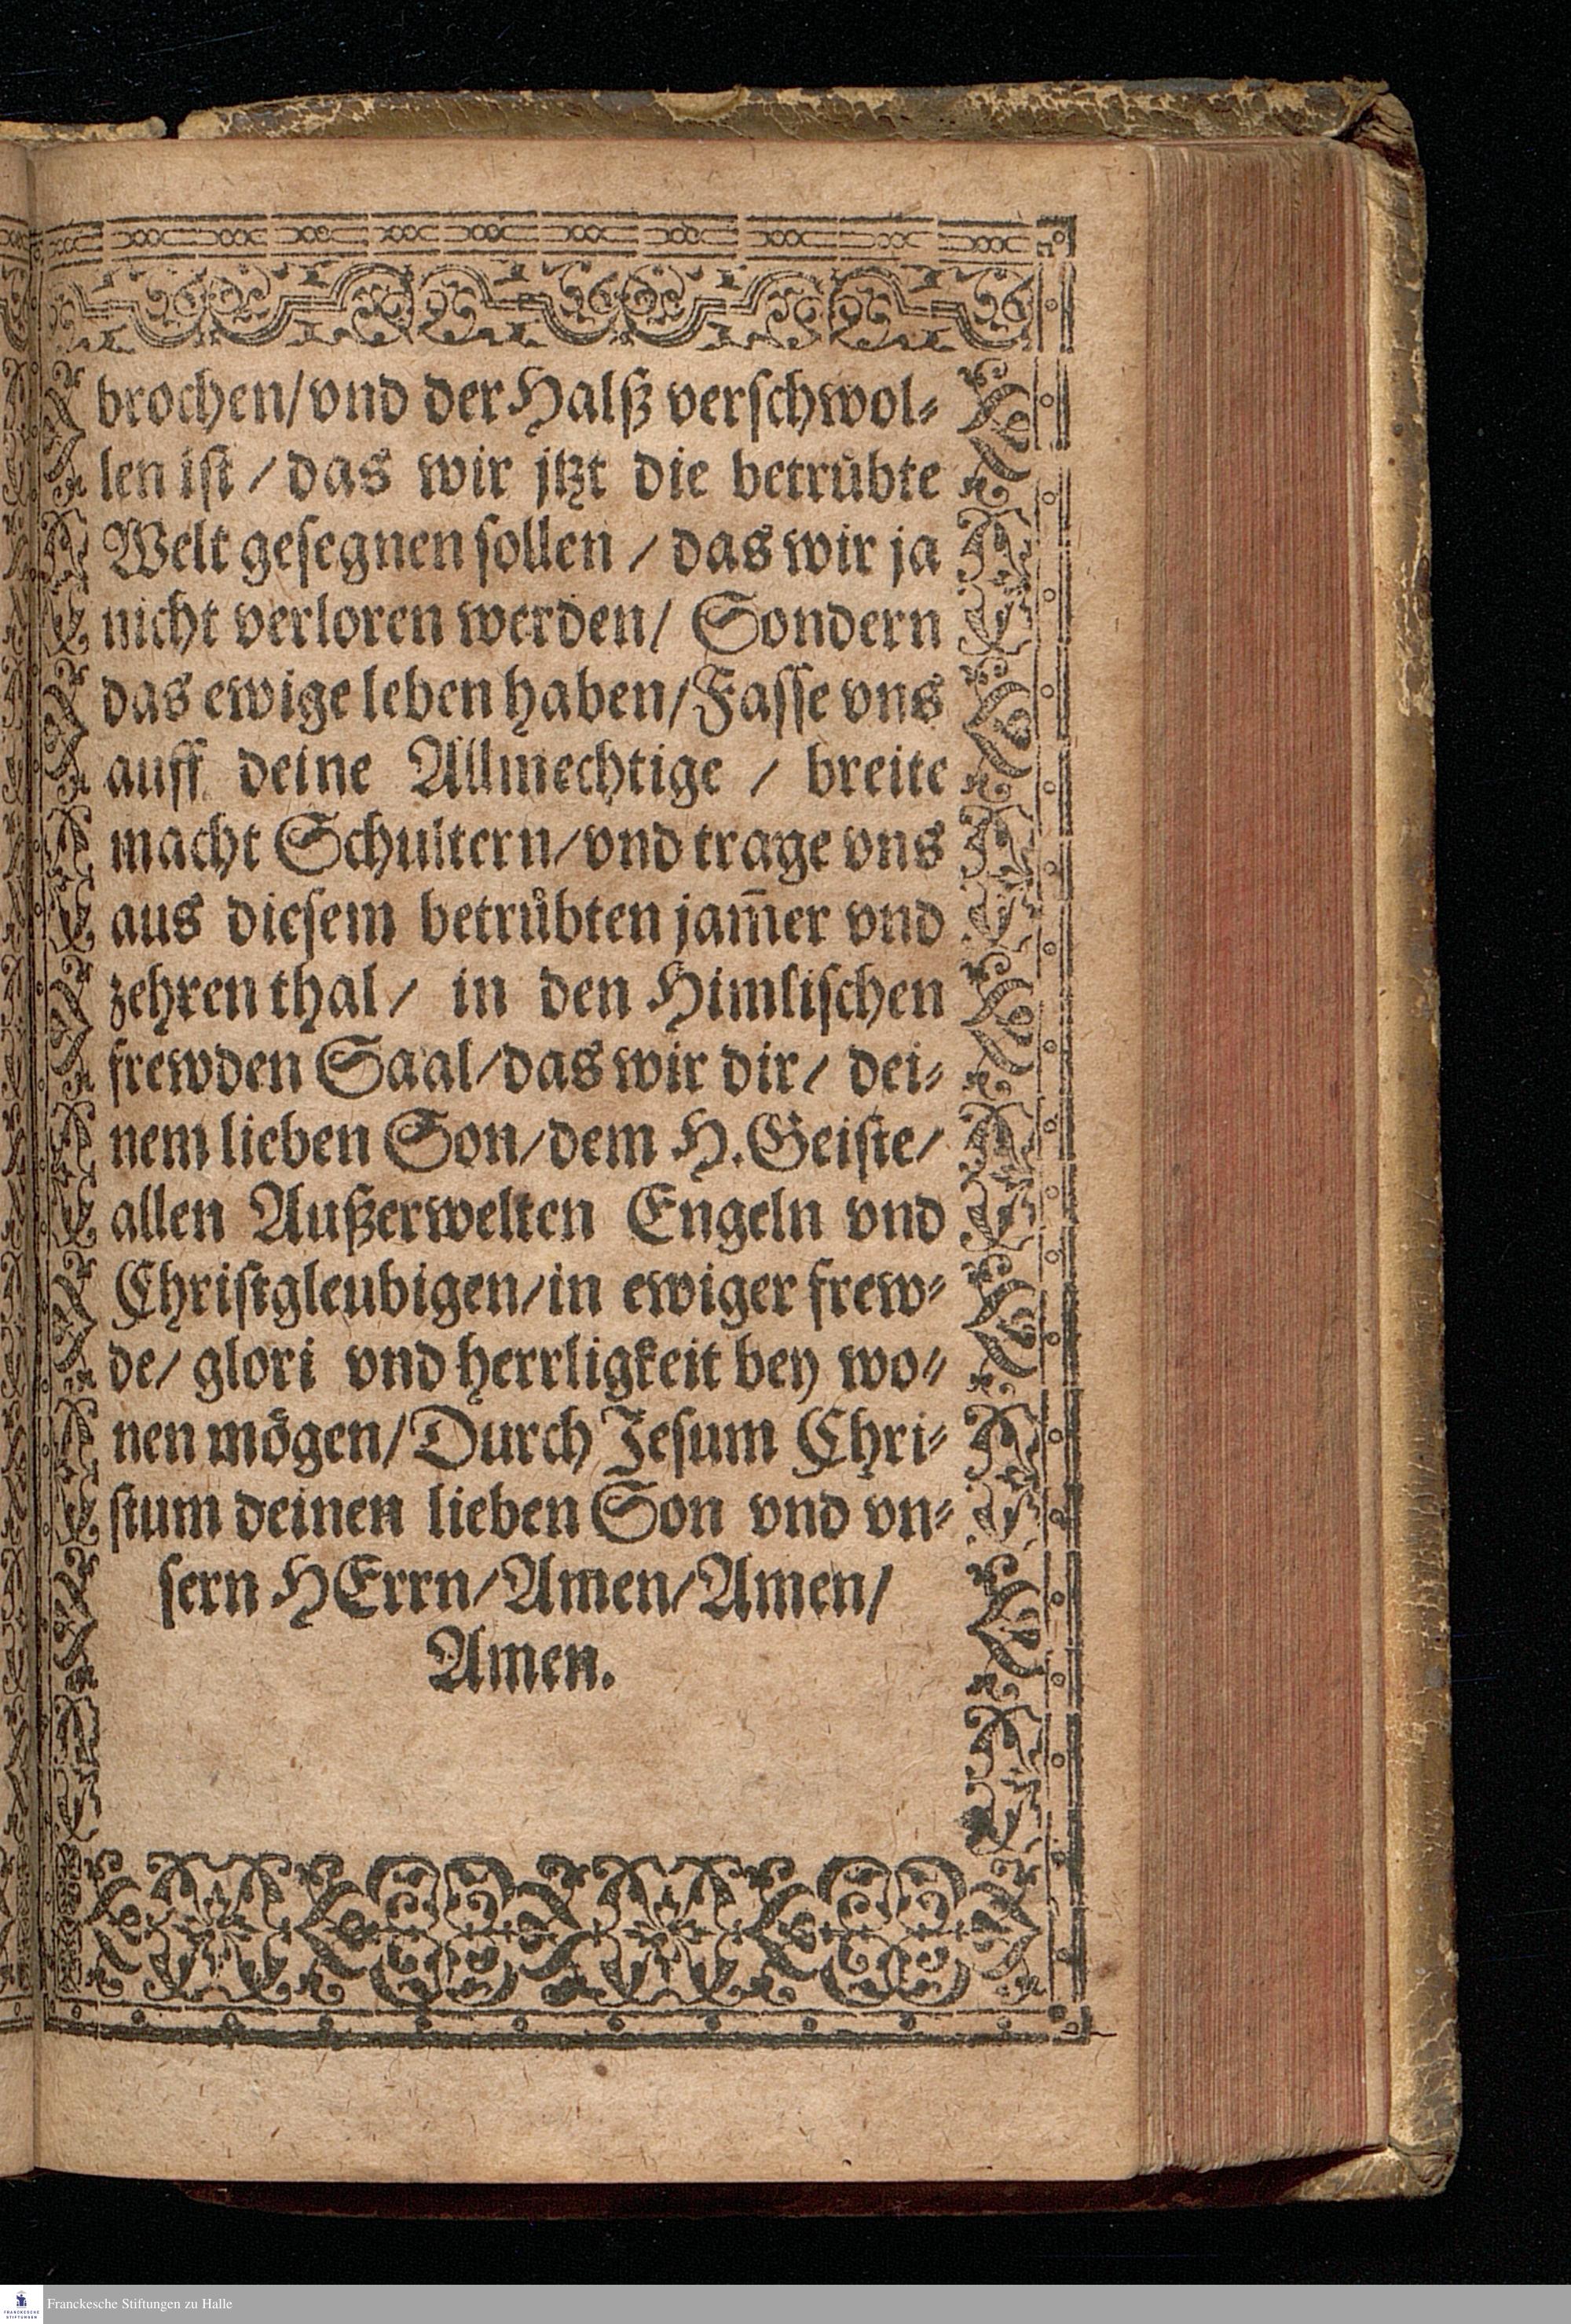 brochen/vnd der Halß verschwol-
len ist / das wir jtzt die betrübte
Welt gesegnen sollen / das wir ja
nicht verloren werden/ Sondern
das ewige leben haben/Fasse vns
auff deine Allmechtige / breite
macht Schultern/vnd trage vns
aus diesem betrůbten jam̄er vnd
zehren thal/ in den Himlischen
frewden Saal/das wir dir/ dei-
nem lieben Son/dem H. Geiste/
allen Außerwelten Engeln vnd
Christgleubigen/in ewiger frew-
de/ glori vnd herrligkeit bey wo-
nen mögen/Durch Jesum Chri-
stum deinen lieben Son vnd vn-
sern HErrn/Amen/Amen/
Amen.
FRANCKESCHE STIFTUNGEN
Franckesche Stiftungen zu Halle